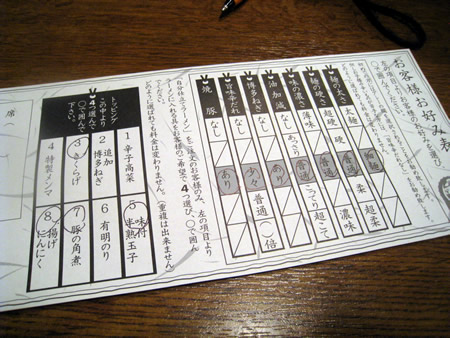 お客様お好み表
麺の太さ
細麺
麺の硬さ 超硬 硬 普通 柔 超柔
味の濃さ 薄味 普通 濃味
油加減 なし あっさり 普通 こってり 超こて
博多ねぎ なし あり
旨味だれ なし あり 普通 ( )倍
焼豚 なし あり
「自分仕立ラーメン」をご注文のお客様のみ、左の項目より
ラーメンに入れる具をお客様のご希望で4つ選び、〇で囲んでください。
どのように選ばれても料金は変わりません。(重複は出来ません)
トッピング
この中より
4つ選んで
〇で囲んで
下さい。
1 辛子高菜
2 追加博多ねぎ
3 きくらげ
4 特製メンマ
5 味付半熟玉子
6 有明のり
7 豚の角煮
8 揚げにんにく
席